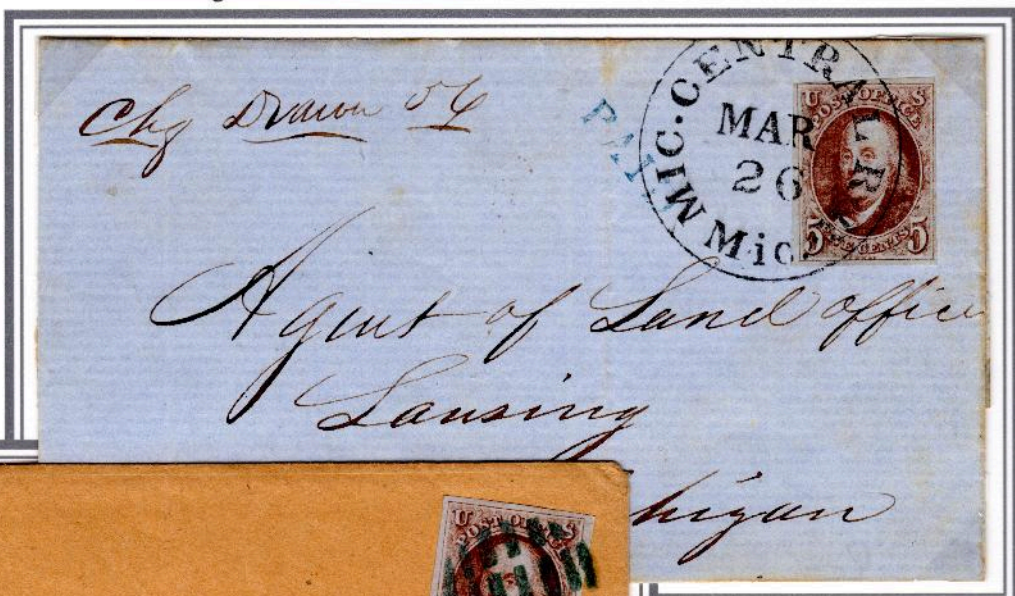 Chg Drawn
PAI
MIC. CENTRAL R
MAR
26
Mic.
U S
POST OFFICE
5 FIVE CENTS 5
Agent of Land office
Lansing
higan
U S
POST OFFICE